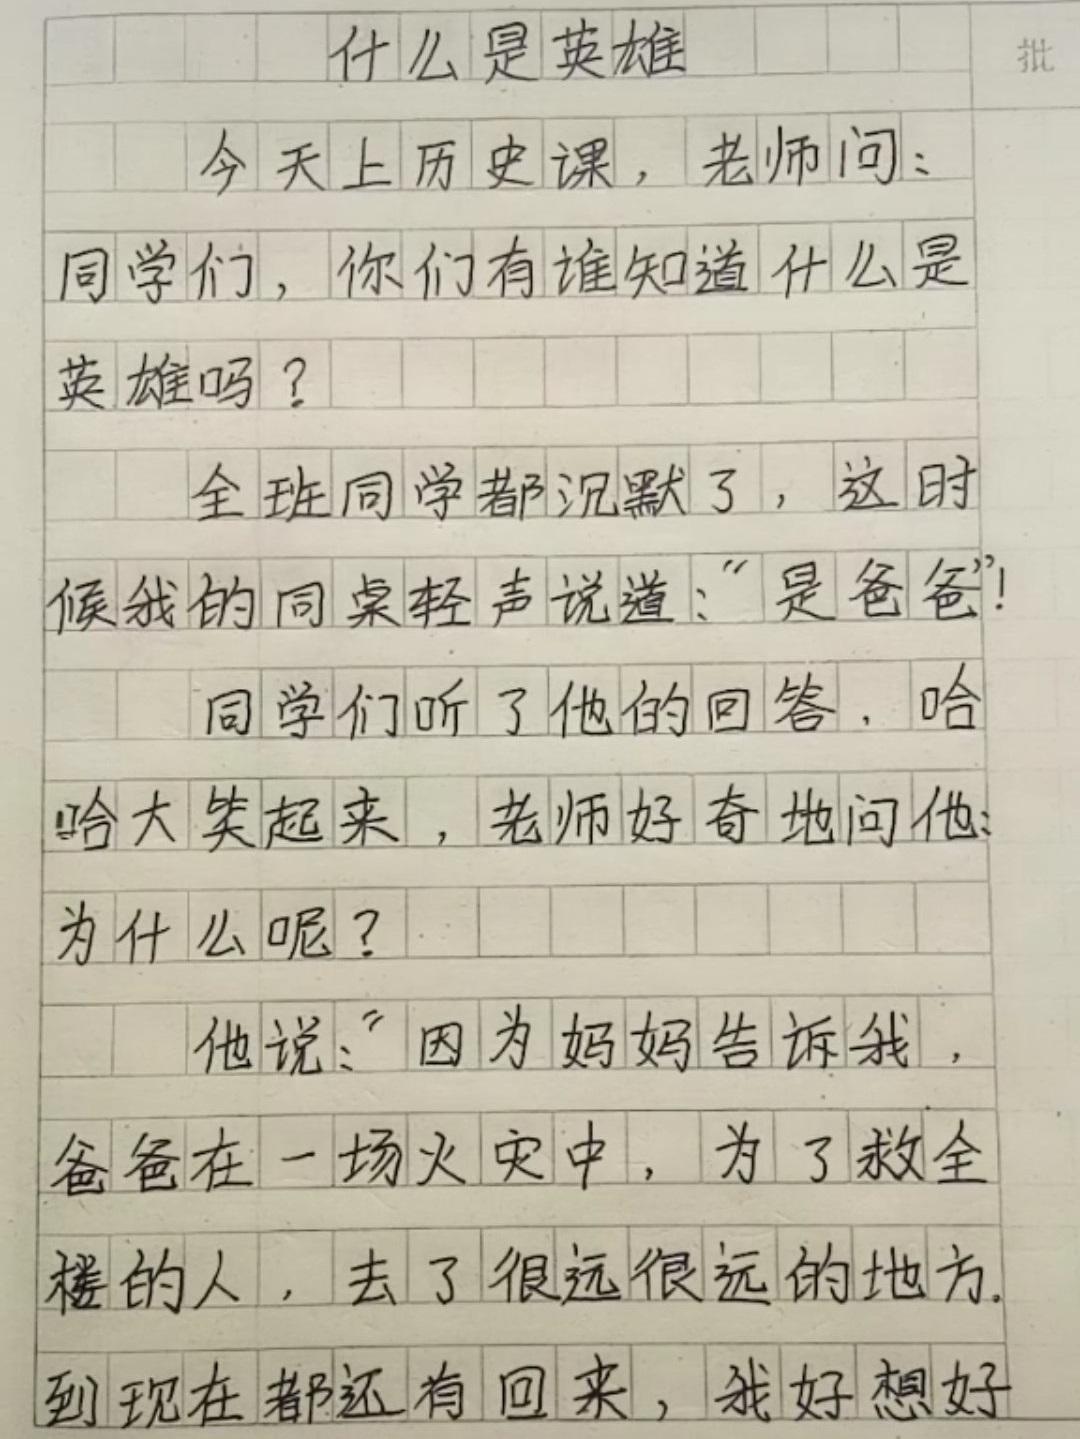 什么是英雄
批
今天上历史课，老师问：
同学们，你们有谁知道什么是
英雄吗？
全班同学都沉默了，这时
候我的同桌轻声说道：“是爸爸”！
同学们听了他的回答．哈
哈大笑起来，老师好奇地问他：
为什么呢？
他说：“因为妈妈告诉我，
爸爸在一场火灾中，为了救全
楼的人，去了很远很远的地方．
到现在都还有回来，我好想好